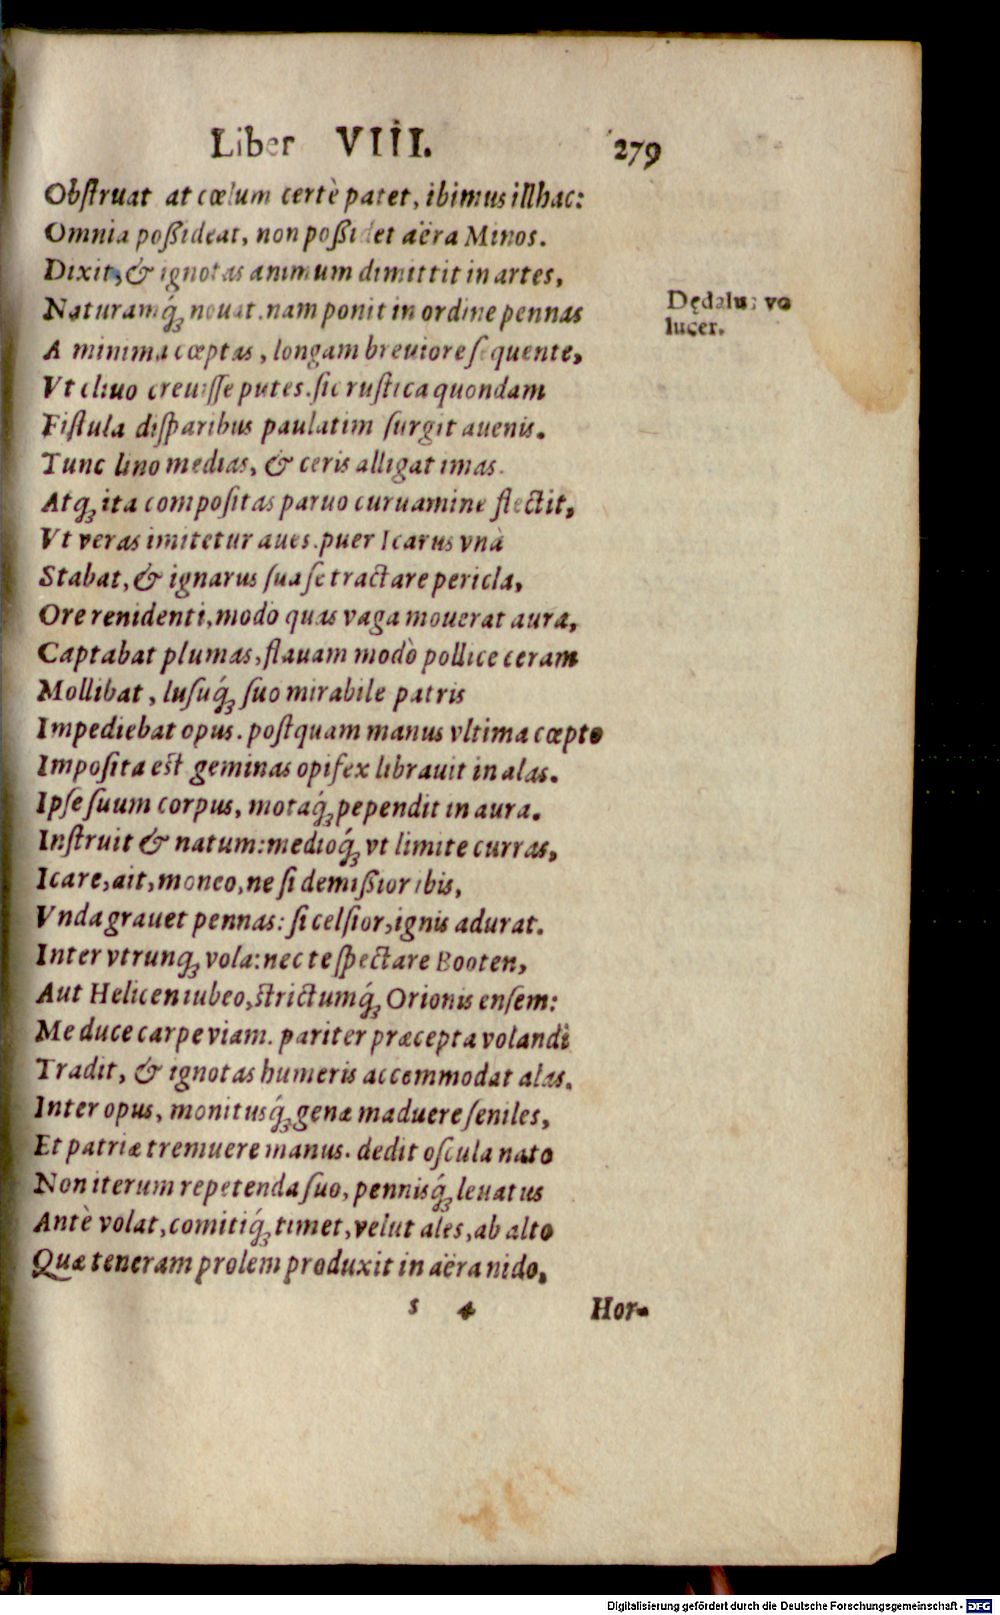 Liber VIII. 279
Obſtruat at cœlum certè patet, ibimus illhac:
Omnia poßideat, non poßidet aëra Minos.
Dixit, & ignotas animum dimittit in artes,
Naturamq́ꝫ nouat. nam ponit in ordine pennas
Dędalus vo
lucer.
A minima cœptas, longam breuiore ſequente,
Vt cliuo creuiſſe putes. ſic ruſtica quondam
Fiſtula diſparibus paulatim ſurgit auenis.
Tunc lino medias, & ceris alligat imas.
Atqꝫ ita compoſitas paruo curuamine flectit,
Vt veras imitetur aues. puer Icarus vnà
Stabat, & ignarus ſua ſe tractare pericla,
Ore renidenti, modò quas vaga mouerat aura,
Captabat plumas, flauam modò pollice ceram
Mollibat, luſuq́ꝫ ſuo mirabile patris
Impediebat opus. poſtquam manus vltima cœpto
Impoſita eſt geminas opifex librauit in alas.
Ipſe ſuum corpus, motaq́ꝫ pependit in aura.
Inſtruit & natum: medioq́ꝫ vt limite curras,
Icare, ait, moneo, ne ſi demißior ibis,
Vnda grauet pennas: ſi celſior, ignis adurat.
Inter vtrunqꝫ vola: nec te ſpectare Booten,
Aut Helicen iubeo, ſtrictumq́ꝫ Orionis enſem:
Me duce carpe viam. pariter præcepta volandi
Tradit, & ignotas humeris accommodat alas.
Inter opus, monitusq́ꝫ genæ maduere ſeniles,
Et patriæ tremuere manus. dedit oſcula nato
Non iterum repetenda ſuo, pennisq́ꝫ leuatus
Antè volat, comitiq́ꝫ timet, velut ales, ab alto
Quæ teneram prolem produxit in aëra nido,
s 4 Hor-
Digitalisierung gefördert durch die Deutsche Forschungsgemeinschaft - DFG